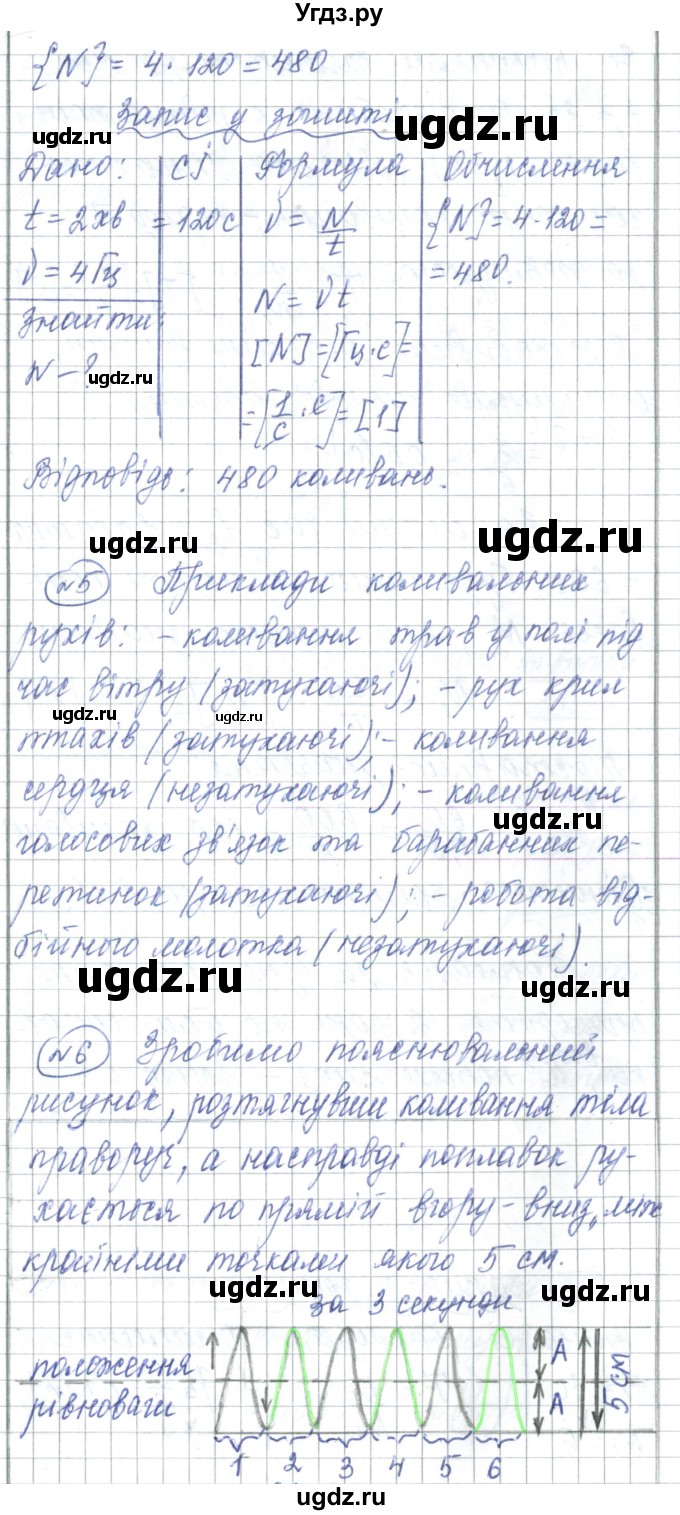 Угдз.ру
{N} = 4 · 120 = 480
Запис у зошиті
Дано: СІ Формула Обчислення
t = 2хв = 120с ν = N/t {N} = 4·120 =
ν = 4Гц = 480.
N = νt
Знайти: [N] = [Гц·с] =
N – ?
= [1/с · с] = [1]
Відповідь: 480 коливань.
№5 Приклади коливальних
рухів: – коливання трав у полі під
час вітру (затухаючі); – рух крил
птахів (затухаючі); – коливання
сердця (незатухаючі); – коливання
голосових зв'язок та барабанних пе-
ретинок (затухаючі); – робота від-
бійного молотка (незатухаючі).
№6 Зробимо пояснювальний
рисунок, розтягнувши коливання тіла
праворуч, а насправді поплавок ру-
хається по прямій вгору-вниз, між
крайніми точками якого 5 см.
за 3 секунди
положення
рівноваги
A
A
5 см
1 2 3 4 5 6
ugdz.ru
ugdz.ru
ugdz.ru
ugdz.ru
ugdz.ru
ugdz.ru
ugdz.ru
ugdz.ru
ugdz.ru
ugdz.ru
ugdz.ru
ugdz.ru
ugdz.ru
ugdz.ru